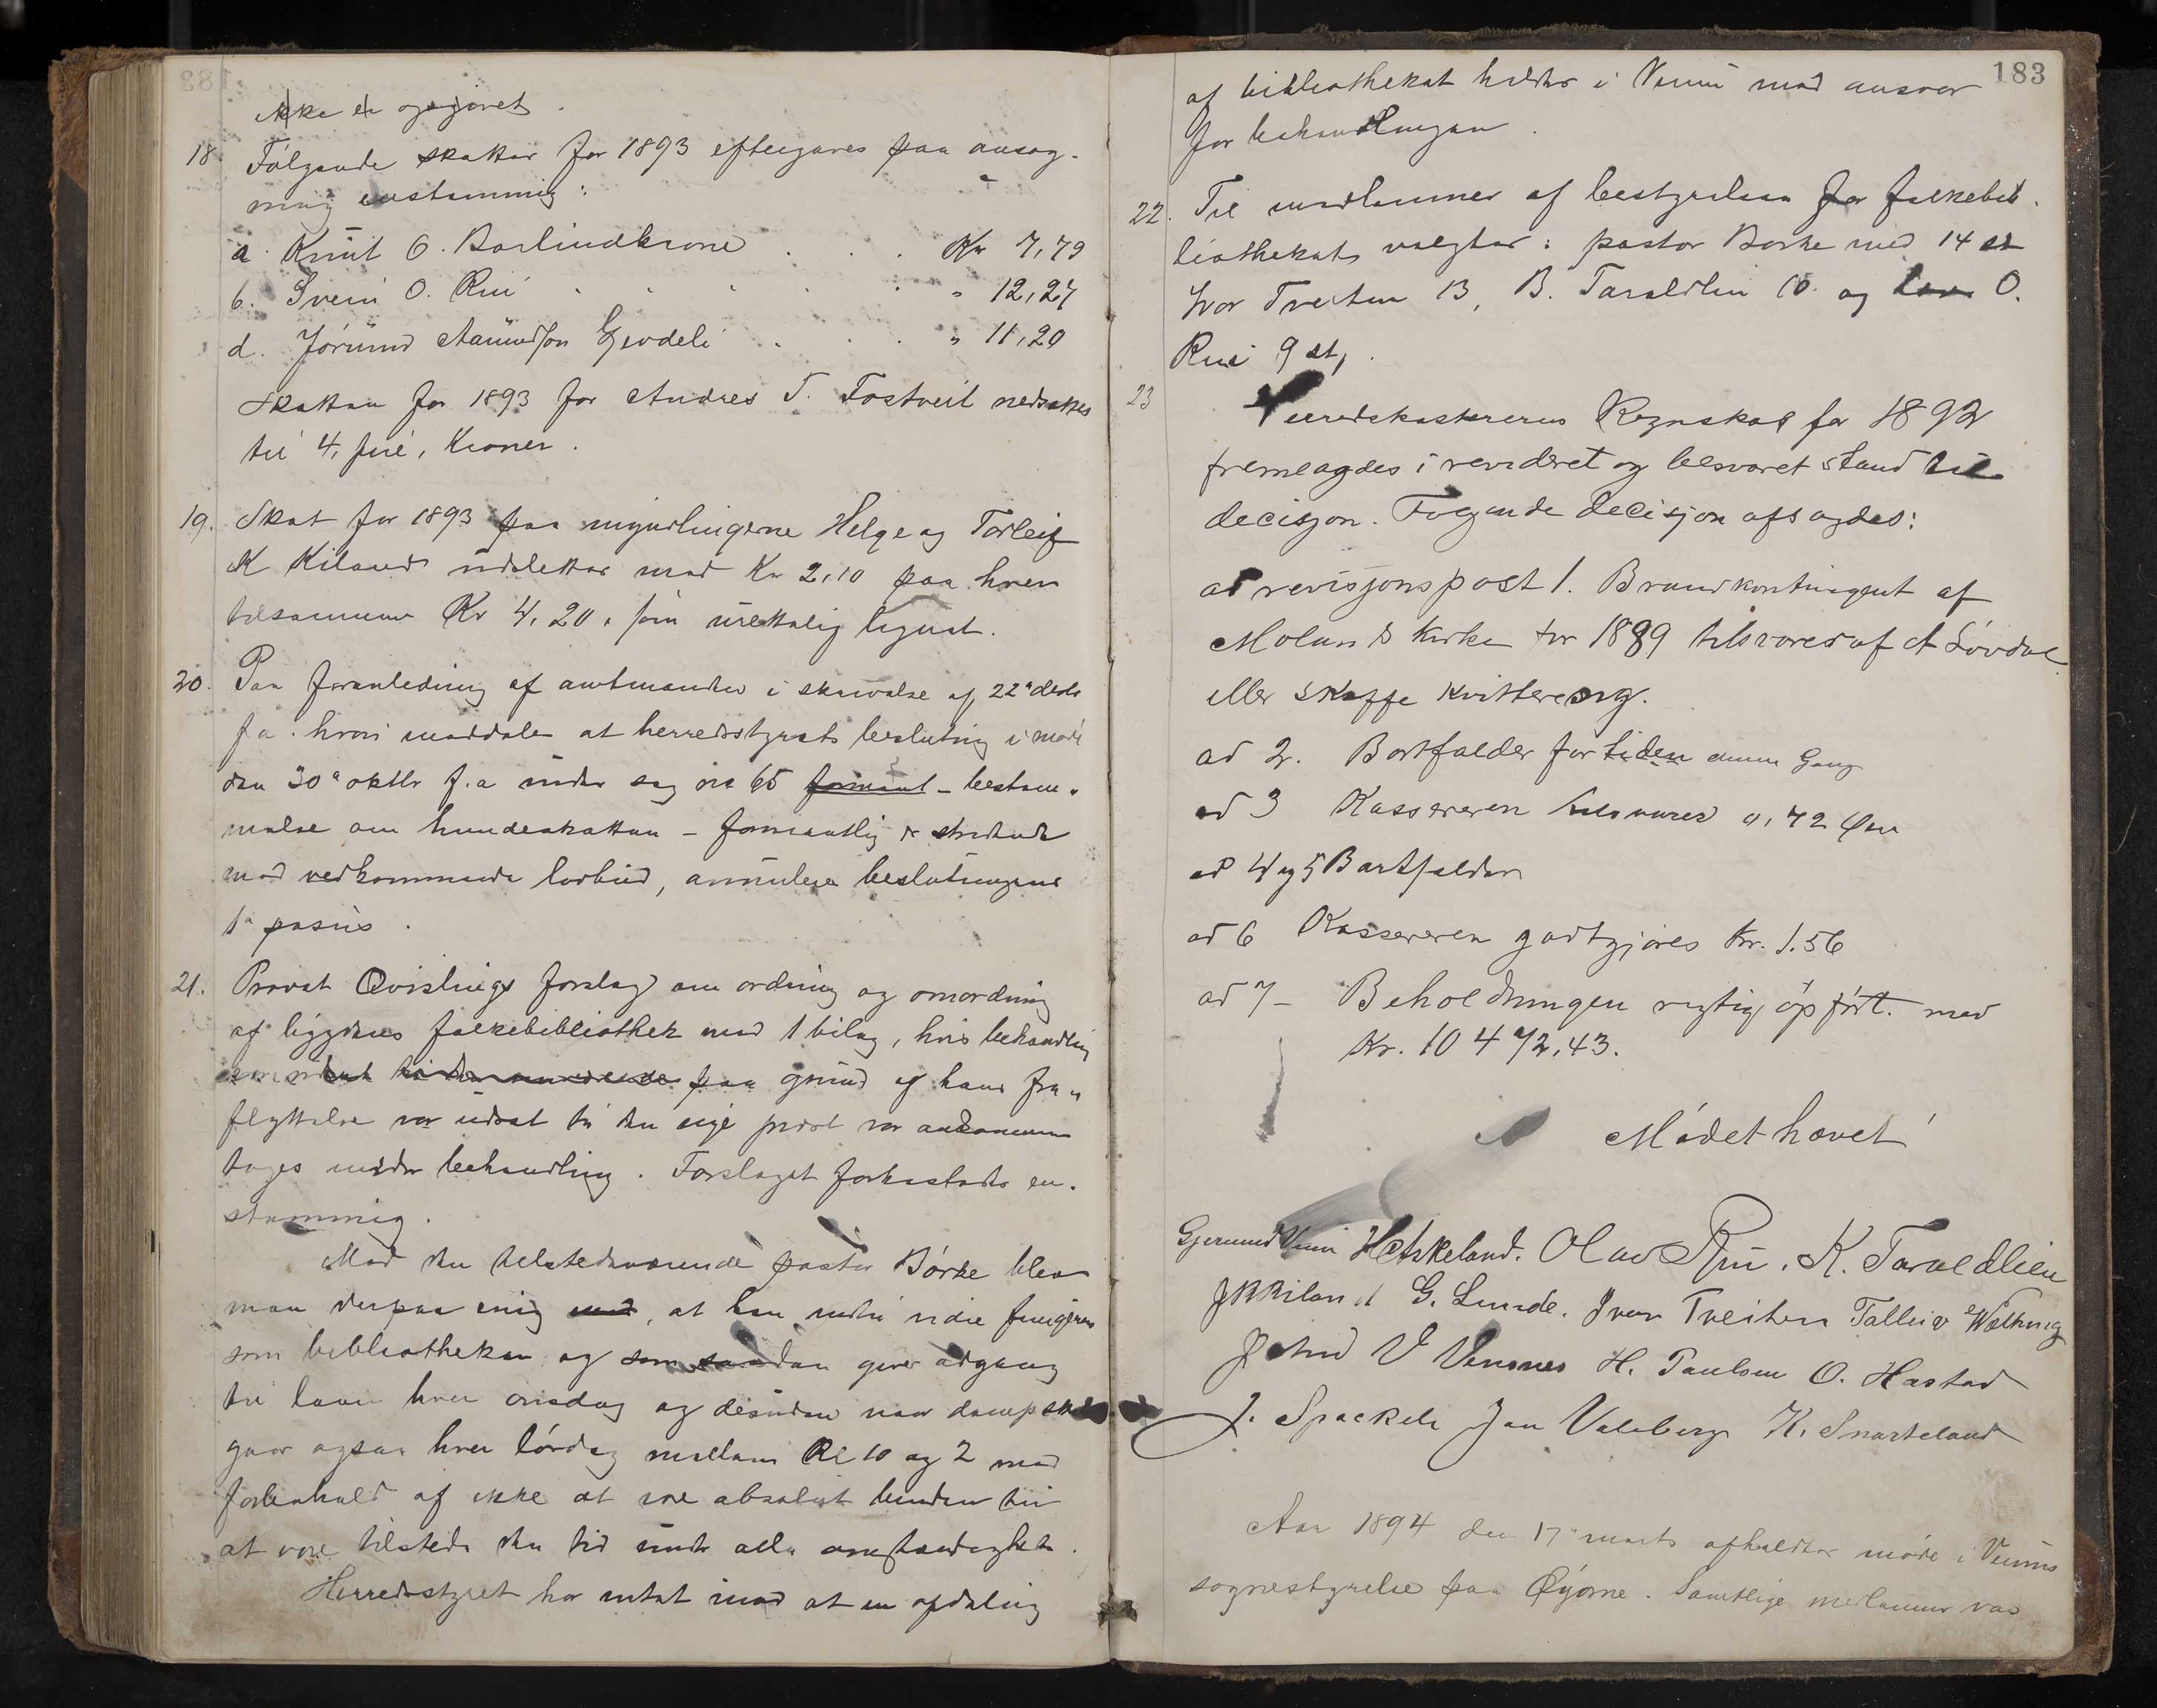 ikke er opgjoret.
18. Følgende skatter for 1893 eftergives paa ansøg-
ning enstemmig:
a. Knut O. Barlindkrone . . . Kr 7,79
b. Svein O. Rui . . . . . " 12,27
d. Jørund Aanundson Gjevdeli . . . " 11,20
Skatten for 1893 for Andres T. Fostveit nedsættes
til 4, fire, Kroner.
19. Skat for 1893 paa myndlingerne Helge og Torleif
K Kiland udslettes med Kr 2,10 paa hver
tilsammen Kr 4,20, som urettelig lignet.
20. Paa foranledning af amtmanden i skrivelse af 22de desbr
f.a. hvori meddeles at herredsstyrets beslutning i møde
den 30te oktbr f.a under sag no 65 forment - bestem-
melse om hundeskatten - formentlig er stridende
mod vedkommende lovbud, annulere beslutningens
1ste pasus.
21. Provst Qvislings forslag om ordning og omordning
af bygdens folkebibliothek med 1 bilag, hvis behandling
paa grund af hans fra-
flyttelse var udsat til den nye prest var ankommen
toges under behandling. Forslaget forkastedes en-
stemmig.
Med den tilstedeværende pastor Børke blev
man derpaa enig med, at han indtil videre fungerer
som bibliothekar og som saadan giver adgang
til laan hver onsdag og desuden naar dampskib
gaar ogsaa hver lørdag mellem Kl 10 og 2 med
forbehold af ikke at være absolut bunden til
at være tilstede den tid under alle omstændigheder.
Herredsstyret har intet imod at en afdeling
183
af bibliotheket holdes i Veum mod ansvar
for behandlingen.
22. Til medlemmer af bestyrelsen for folkebib-
liotheket valgtes: pastor Børke med 14 st
Ivar Treiten 13, B. Taraldlien 10 og O.
Rui 9 st,.
23 Herredskasererens Regnskab for 1892
fremlagdes i revideret og besvaret stand til
decisjon. Følgende decisjon afsagdes:
ad revisjonspost 1. Brandkontingent af
Molands Kirke for 1889 tilsvares af A Løvdal
eller skaffe kvittering.
ad 2. Bortfalder for tiden denne Gang
ad 3 Kassereren tilsvarer 0,72 Øre
ad 4 og 5 Bortfalder
ad 6 Kassereren godtgjøres Kr. 1.56
ad 7 - Beholdningen rigtig opført. med
Kr. 10472,43.
Mødet hævet
Gjermund Veum H Askeland. Olav Rui. K. Taraldlien
J K Kiland G. Lunde. Ivar Treiten Talleiv
John V Vennes H. Paulsen O. Hastad
J. Spaekele Jan Valeberg K. Snarteland
Aar 1894 den 17de marts afholdtes møde i Veums
sognestyrelse paa Øyerne. Samtlige medlemmer var